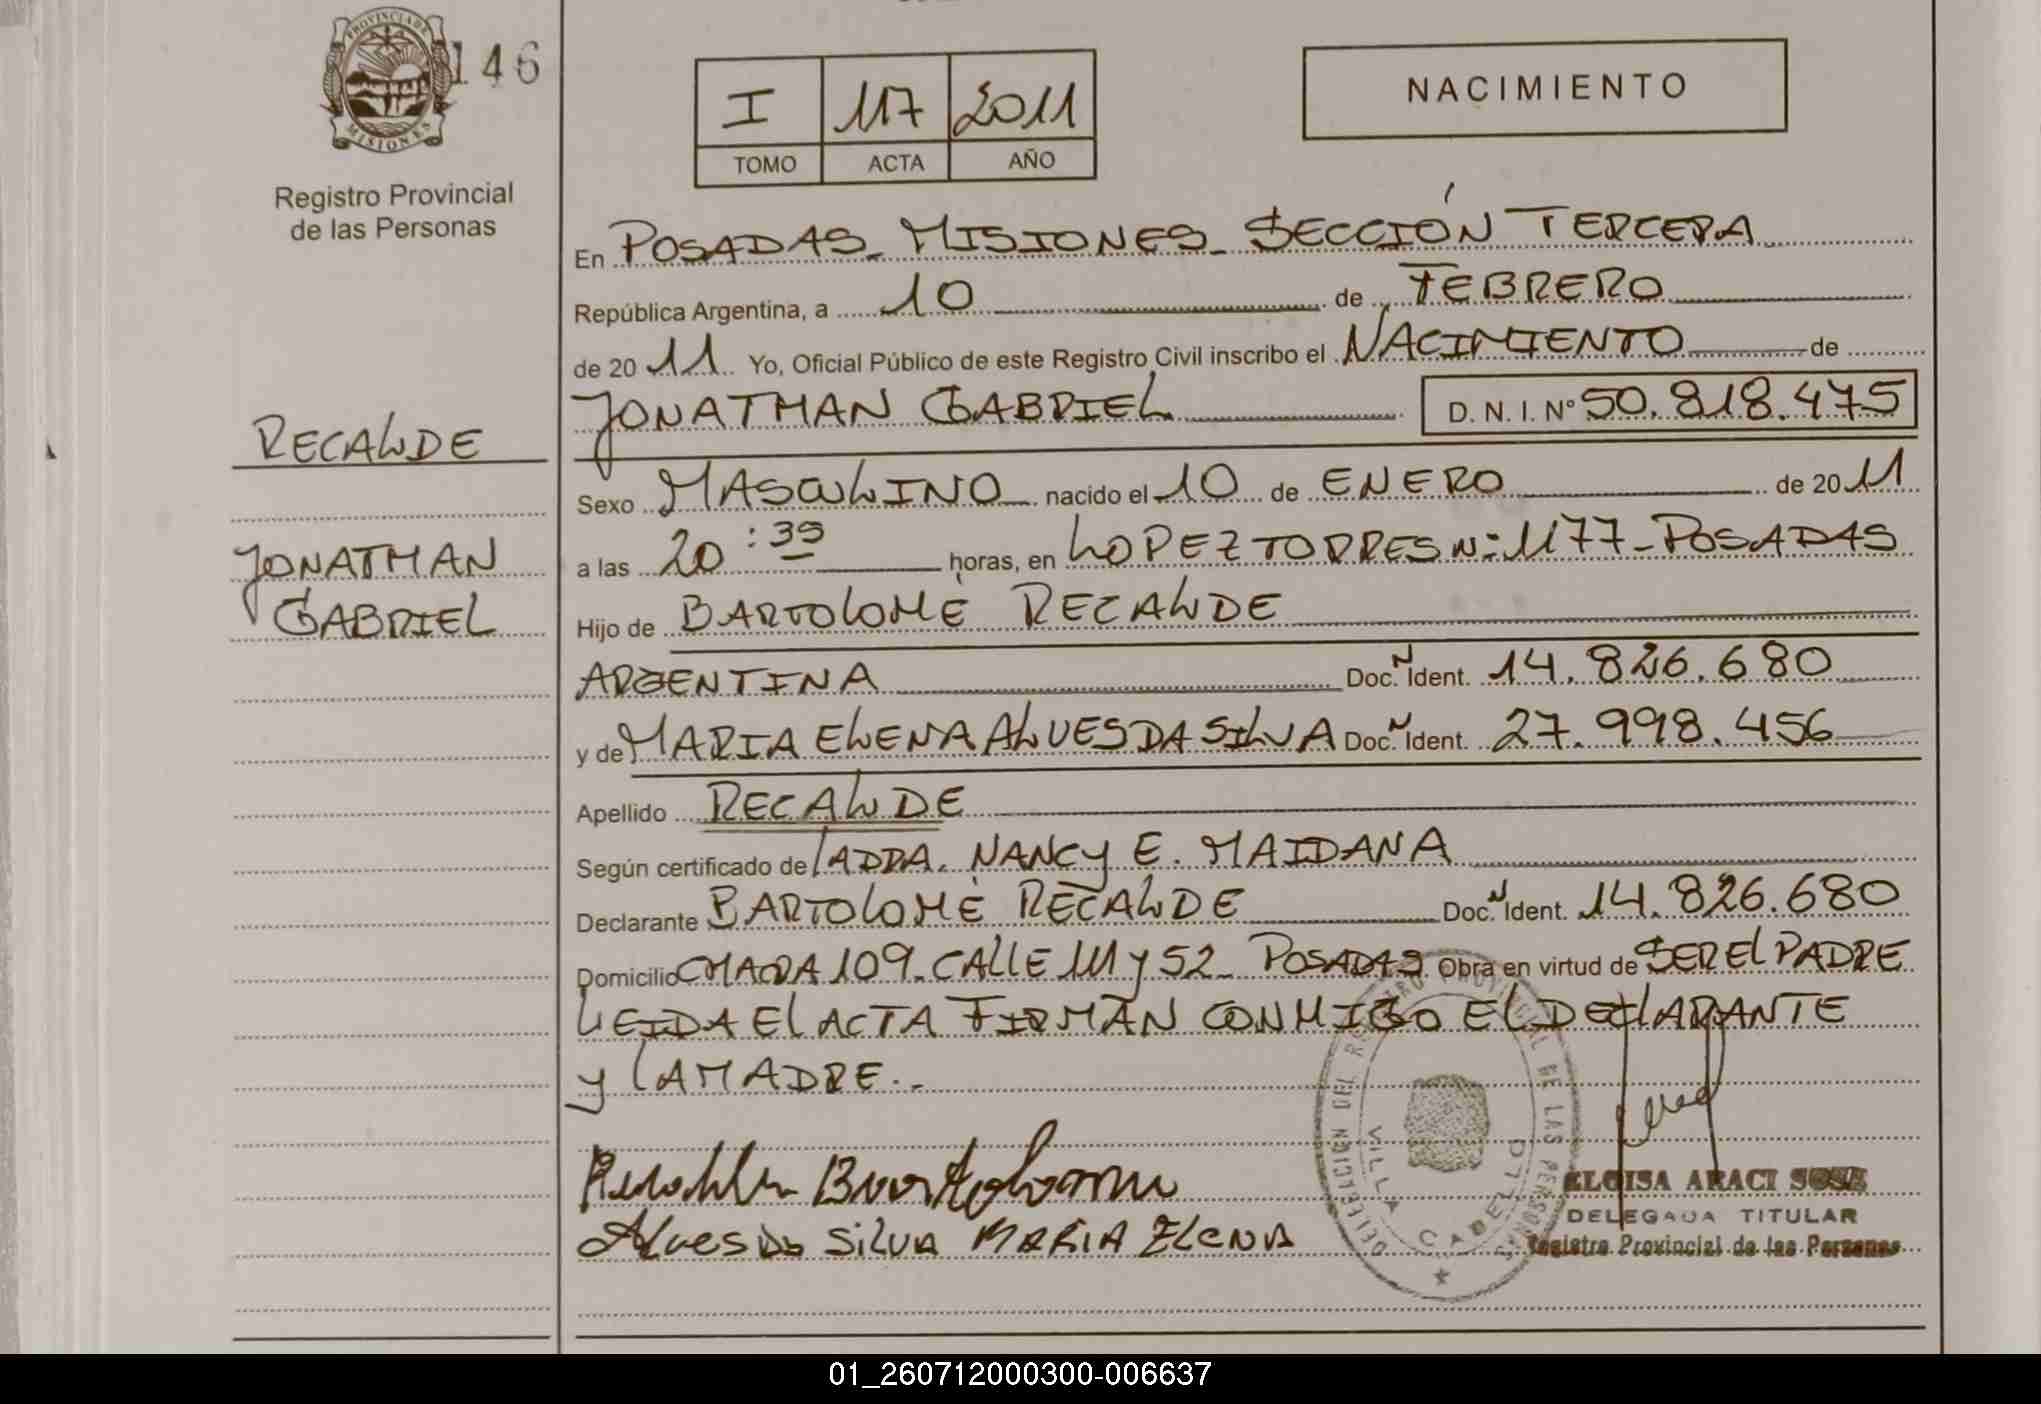 PROVINCIA DE
MISIONES
146
Registro Provincial
de las Personas
I 117 2011
TOMO ACTA AÑO
NACIMIENTO
En POSADAS - MISIONES - SECCIÓN TERCERA
República Argentina, a 10 de FEBRERO
de 2011 Yo, Oficial Público de este Registro Civil inscribo el NACIMIENTO de
JONATHAN GABRIEL D. N. I. N° 50.818.475
RECALDE
JONATHAN
GABRIEL
Sexo MASCULINO nacido el 10 de ENERO de 2011
a las 20:39 horas, en LOPEZ TORRES Nº 1177 - POSADAS
Hijo de BARTOLOMÉ RECALDE
ARGENTINA Doc. N Ident. 14.826.680
y de MARIA ELENA ALVES DA SILVA Doc. N Ident. 27.998.456
Apellido RECALDE
Según certificado de NANCY E. MAIDANA
Declarante BARTOLOMÉ RECALDE Doc. N Ident. 14.826.680
Domicilio CHACRA 109 - CALLE 111 y 52 - POSADAS Obra en virtud de SER EL PADRE
LEIDA EL ACTA FIRMAN CONMIGO EL DECLARANTE
y LA MADRE.-
Recalde Bartolome
Alves Da Silva Maria Elena
DELEGACION DEL REGISTRO PROVINCIAL DE LAS PERSONAS
VILLA CABELLO
ELOISA ARACI SOSA
DELEGADA TITULAR
Registro Provincial de las Personas
01_260712000300-006637